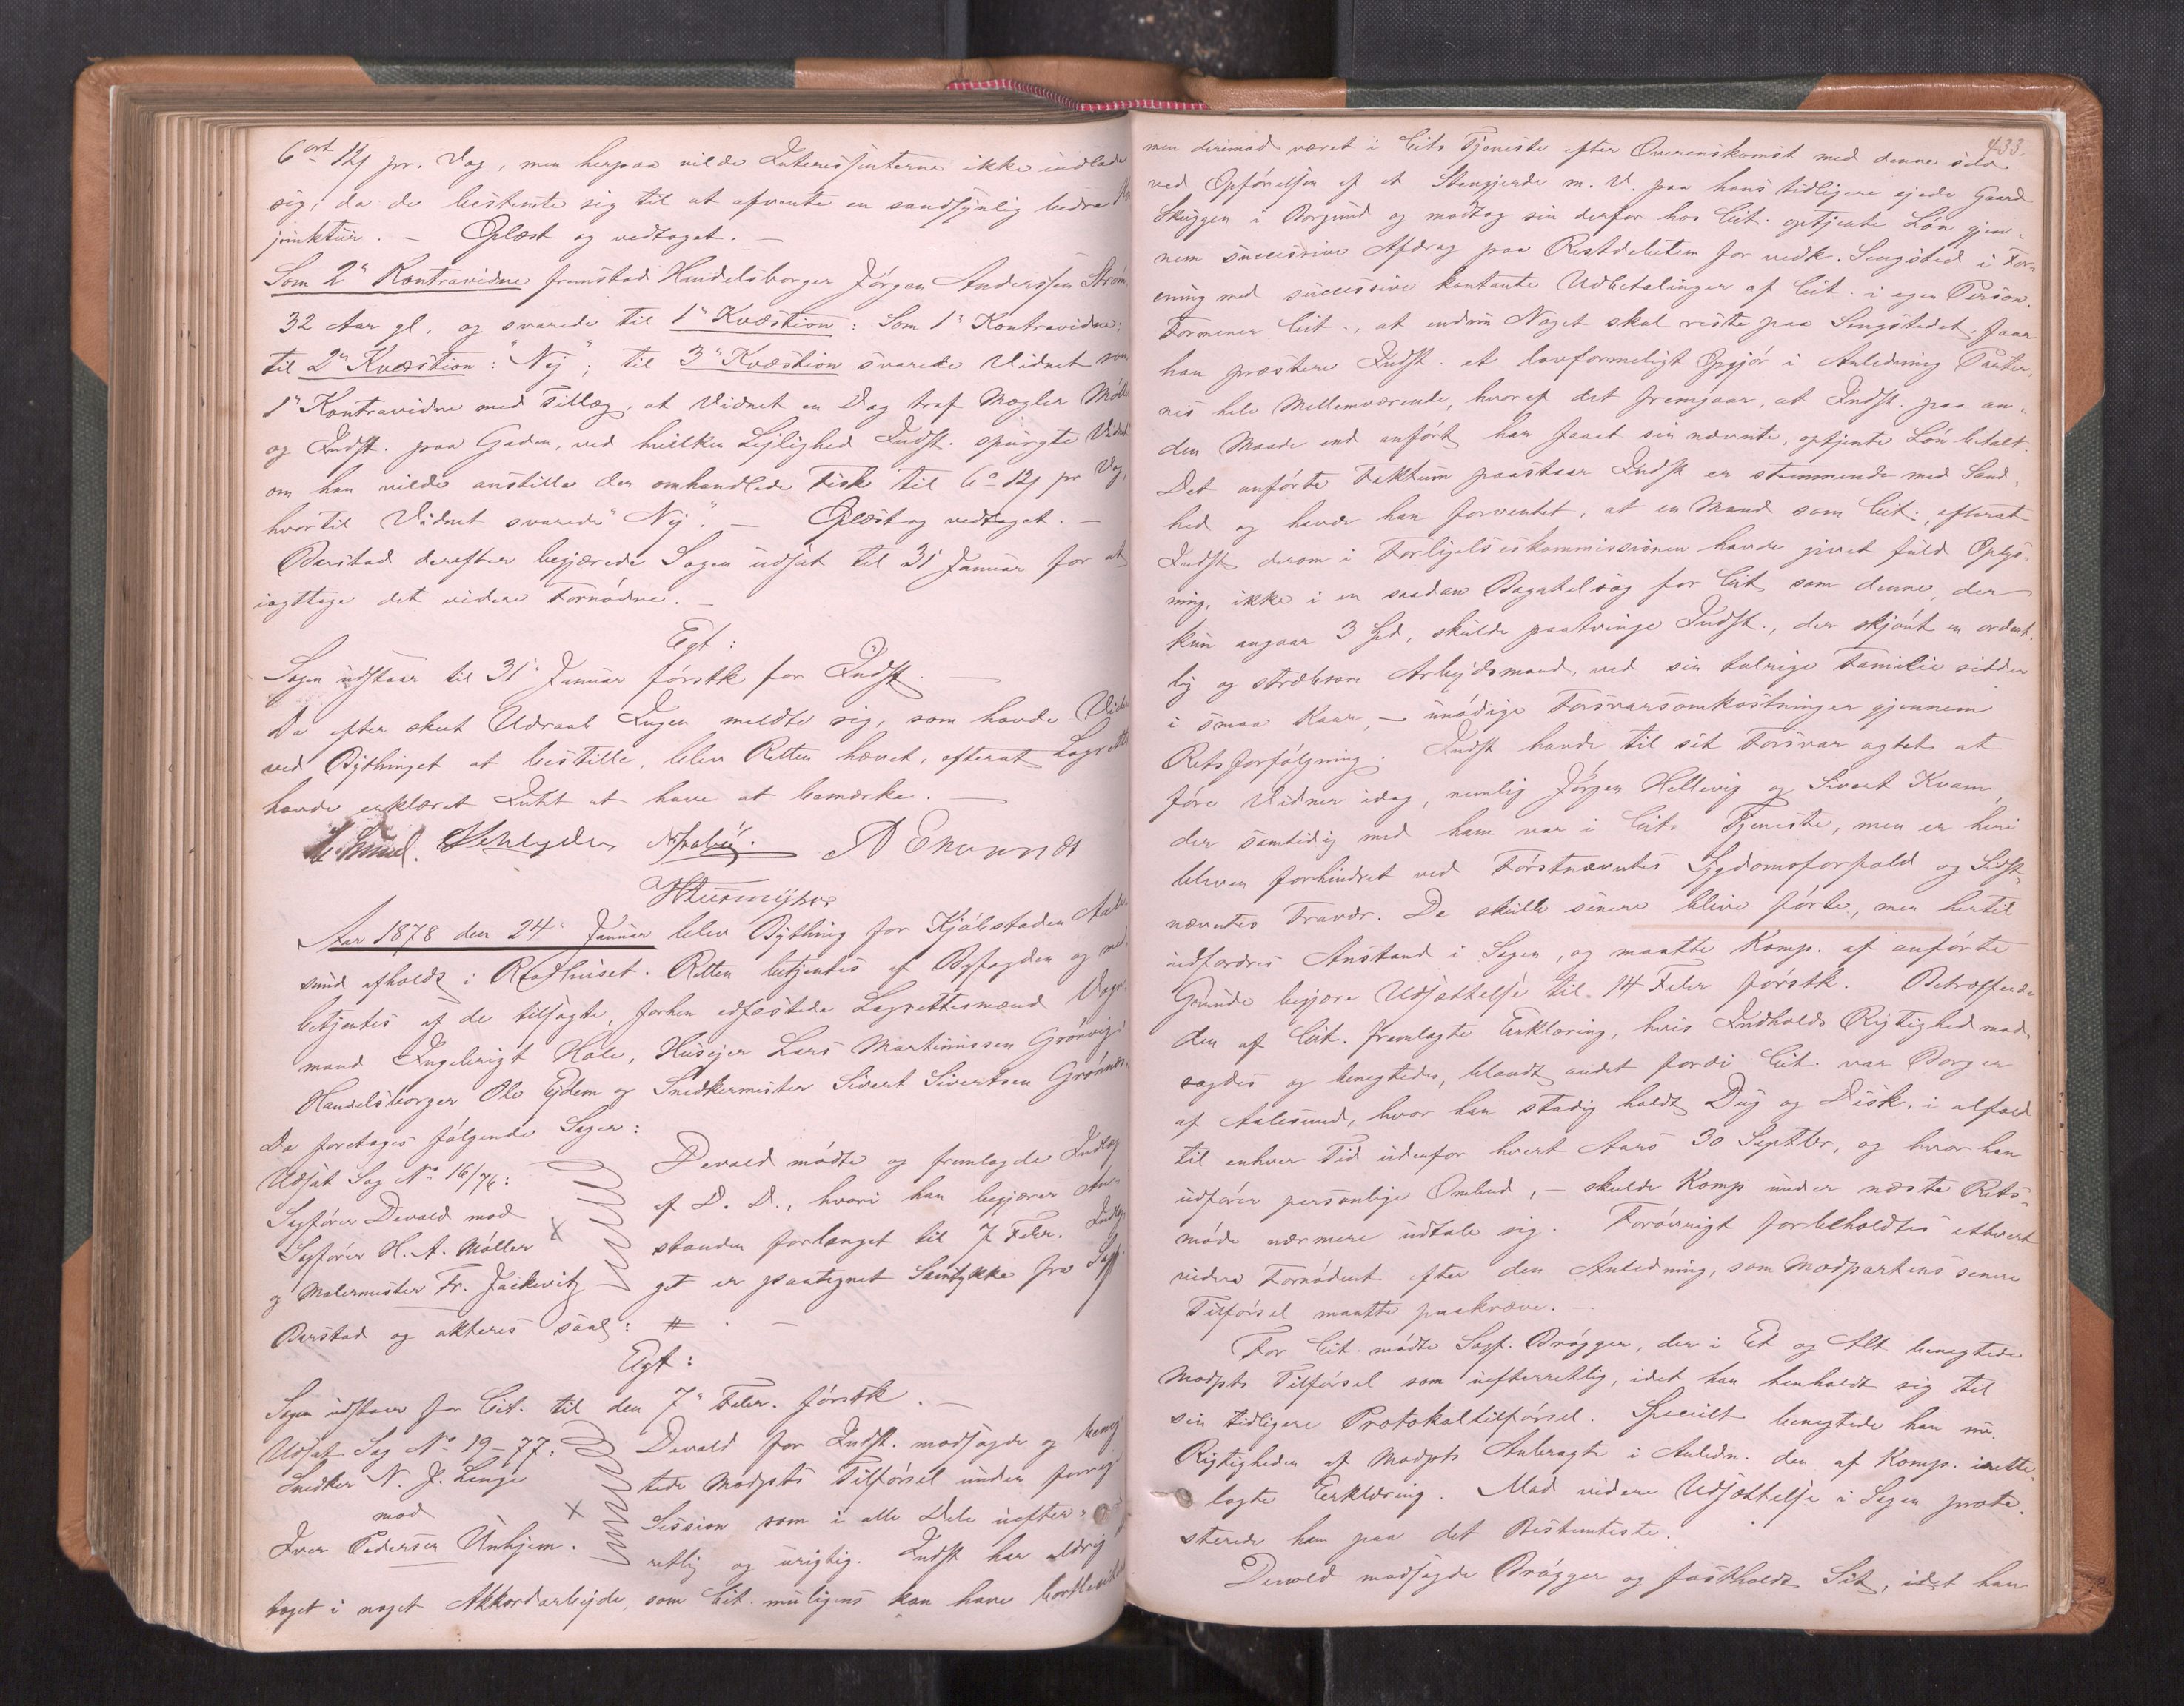 6 ort 12 s pr. Vog, men herpaa vilde Interessenterne ikke indlade
sig, da de bestemte sig til at afvente en sandsynlig bedre
junktur. – Oplæst og vedtaget. –
Som 2det Kontravidne fremstod Handelsborger Jørgen Anderssen Strøm,
32 Aar gl., og svarede til 1ste Kvæstion: Som 1ste Kontravidne;
til 2den Kvæstion: "Nej"; til 3die Kvæstion svarede Vidnet som
1ste Kontravidne med Tillæg, at Vidnet en Dag traf Mægler
og Indst. paa Gaden, ved hvilken Lejlighed Indst. spurgte Vidnet
om han vilde anstille den omhandlede Fisk til 6 o 12 s pr Vog,
hvortil Vidnet svarede "Nej". – Oplæst og vedtaget. –
Barstad derefter begjærede Sagen udsat til 31 Januar for at
iagttage det videre Fornødne. –
Egt:
Sagen udstaar til 31 Januar førstk for Indst. –
Da efter skeet Udraab Ingen meldte sig, som havde Videre
ved Bythinget at bestille, blev Retten hævet, efterat Lagrettet
havde erklæret Intet at have at bemærke. –
Aar 1878 den 24de Januar blev Bything for Kjøbstaden Aale-
sund afholdt i Raadhuset. Retten betjentes af Byfogden og med-
betjentes af de tilsagte, forhen edfæstede Lagrettesmænd Vogn-
mand Ingebrigt Hole, Husejer Lars Martinussen Grønvig,
Handelsborger Ole Ejdem og Snedkermester Sivert Sivertsen
Da foretoges følgende Sager:
Udsat Sag No 16/76:
Sagfører Devold mod
Sagfører H. A. Møller
og Malermester Fr. Jackwitz
Devold mødte og fremlagde Indlæg
af D. D., hvori han begjærer An-
standen forlænget til 7 Febr. Indlæg-
get er paategnet Samtykke fra Sagf.
Barstad og akteres saal: #. –
Egt:
Sagen udstaar for Cit. til den 7de Febr. førstk. –
Udsat Sag No 19–77:
Snedker N. J. Lange
mod
Iver Pedersen Unhjem.
Devold for Indst. modsagde og beneg-
tede Modpts Tilførsel under forrige
Session som i alle Dele uefter-
retlig og urigtig. Indst har aldrig
taget i noget Akkordarbejde, som Cit. muligens kan have
433.
men derimod været i Cits Tjeneste efter Overenskomst med denne
ved Opførelsen af et Stengjerde m. V. paa hans tidligere ejede Gaard
Skuggen i Borgund og modtog sin derfor hos Cit. optjente Løn gjen-
nem successive Afdrag paa Restdebeten for vedk. Sengsted i For-
ening med successive kontante Udbetalinger af Cit. i egen Person.
Formener Cit., at endnu Noget skal restere paa Sengstedet, faar
han præstere Indst. et lovformeligt Opgjør i Anledning Parter-
nes hele Mellemværende, hvoraf det fremgaar, at Indst. paa an-
den Maade end anført har faaet sin nævnte, optjente Løn betalt.
Det anførte Faktum paastaar Indst er stemmende med Sand-
hed og havde han forventet, at en Mand som Cit., efterat
Indst derom i Forligelseskommissionen havde givet fuld Oplys-
ning, ikke i en saadan Bagatelsag for Cit som denne, der
kun angaar 3 Spd, skulde paatvinge Indst., der skjønt en ordent-
lig og stræbsom Arbejdsmand, ved sin talrige Familie sidder
i smaa Kaar, – unødige Forsvarsomkostninger gjennem
Retsforfølgning. Indst havde til sit Forsvar agtet at
føre Vidner idag, nemlig Jørgen Hellevig og Sivert Kvam,
der samtidig med ham var i Cits Tjeneste, men er heri
bleven forhindret ved Førstnævntes Sygdomsforfald og Sidst-
nævntes Fravær. De skulle senere blive førte, men hertil
udfordres Anstand i Sagen, og maatte Komp. af anførte
Grunde begjære Udsættelse til 14 Febr førstk. Betræffende
den af Cit. fremlagte Erklæring, hvis Indholds Rigtighed mod-
sagdes og benegtedes, blandt andet fordi Cit. var Borger
af Aalesund, hvor han stadig holdt Dug og Disk, i alfald
til enhver Tid udenfor hvert Aars 30 Septbr, og hvor han
udfører personlige Ombud, – skulde Komp under næste Rets-
møde nærmere udtale sig. Forøvrigt forbeholdtes ethvert
videre Fornødent efter den Anledning, som Modpartens senere
Tilførsel maatte paakræve. –
For Cit. mødte Sagf. Brøgger, der i Et og Alt benegtede
Modpts Tilførsel som uefterretlig, idet han henholdt sig til
sin tidligere Protokoltilførsel. Specielt benegtede han
Rigtigheden af Modpts Anbragte i Anledn. den af Komp. irette-
lagte Erklæring. Mod videre Udsættelse i Sagen prote-
sterede han paa det Bestemteste.
Devold modsagde Brøgger og fastholdt Sit, idet han